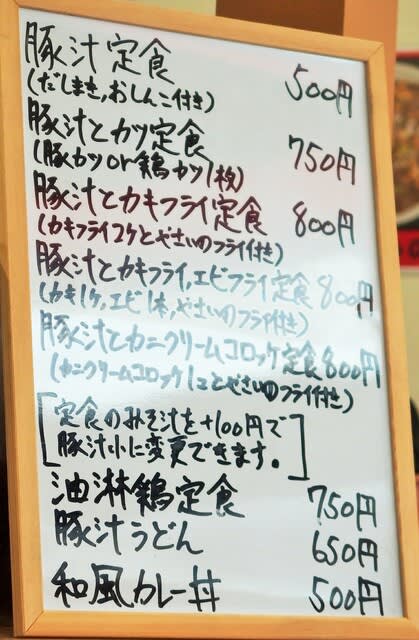 豚汁定食 500円
(だしまき,おしんこ付き)
豚汁とカツ定食 750円
(豚カツor鶏カツ1枚)
豚汁とカキフライ定食 800円
(カキフライ2ケとやさいのフライ付き)
豚汁とカキフライ,エビフライ定食 800円
(カキ1ケ,エビ1本,やさいのフライ付き)
豚汁とカニクリームコロッケ定食 800円
(カニクリームコロッケ1コとやさいのフライ付き)
[定食のみそ汁を+100円で
豚汁小に変更できます。]
油淋鶏定食 750円
豚汁うどん 650円
和風カレー丼 500円